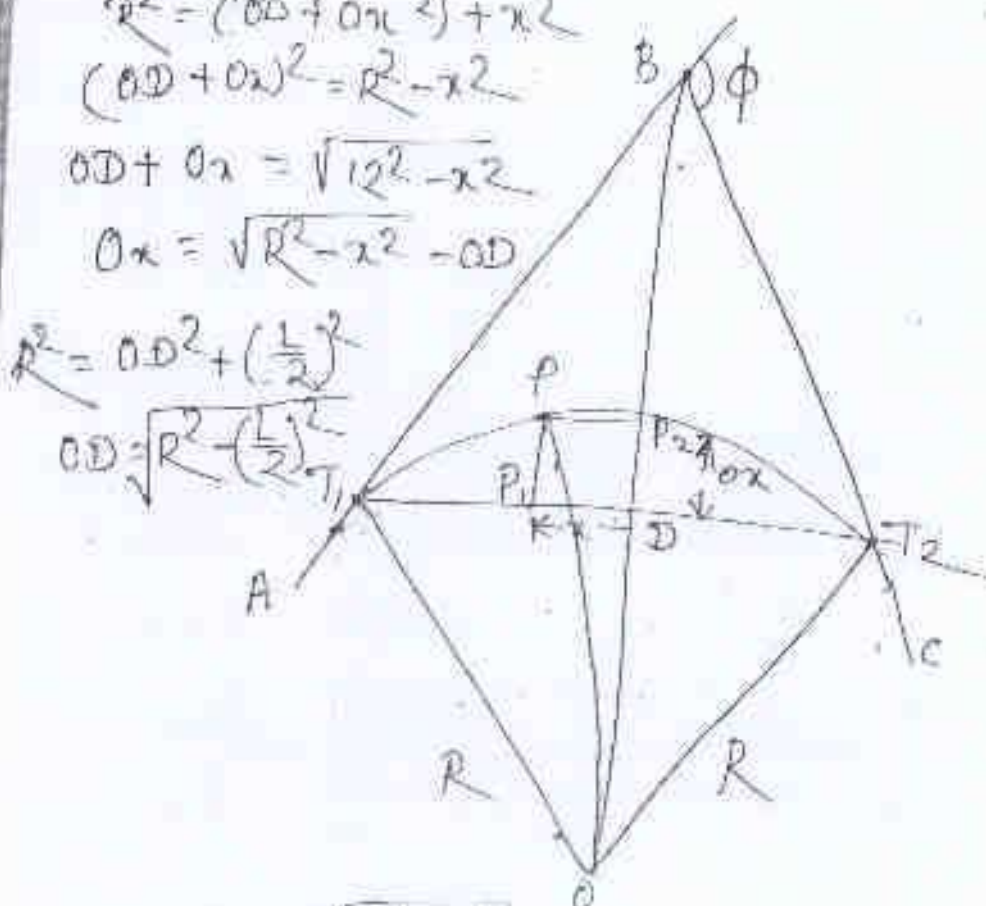 R² = (OD + Ox²) + x²
(OD + Ox)² = R² - x²
OD + Ox = √12² - x²
Ox = √R² - x² - OD
R² = OD² + (L/2)²
OD = √R² - (L/2)²
B
ϕ
P
P₂
Ox
T₁
P₁
x
D
T₂
A
C
R
R
O